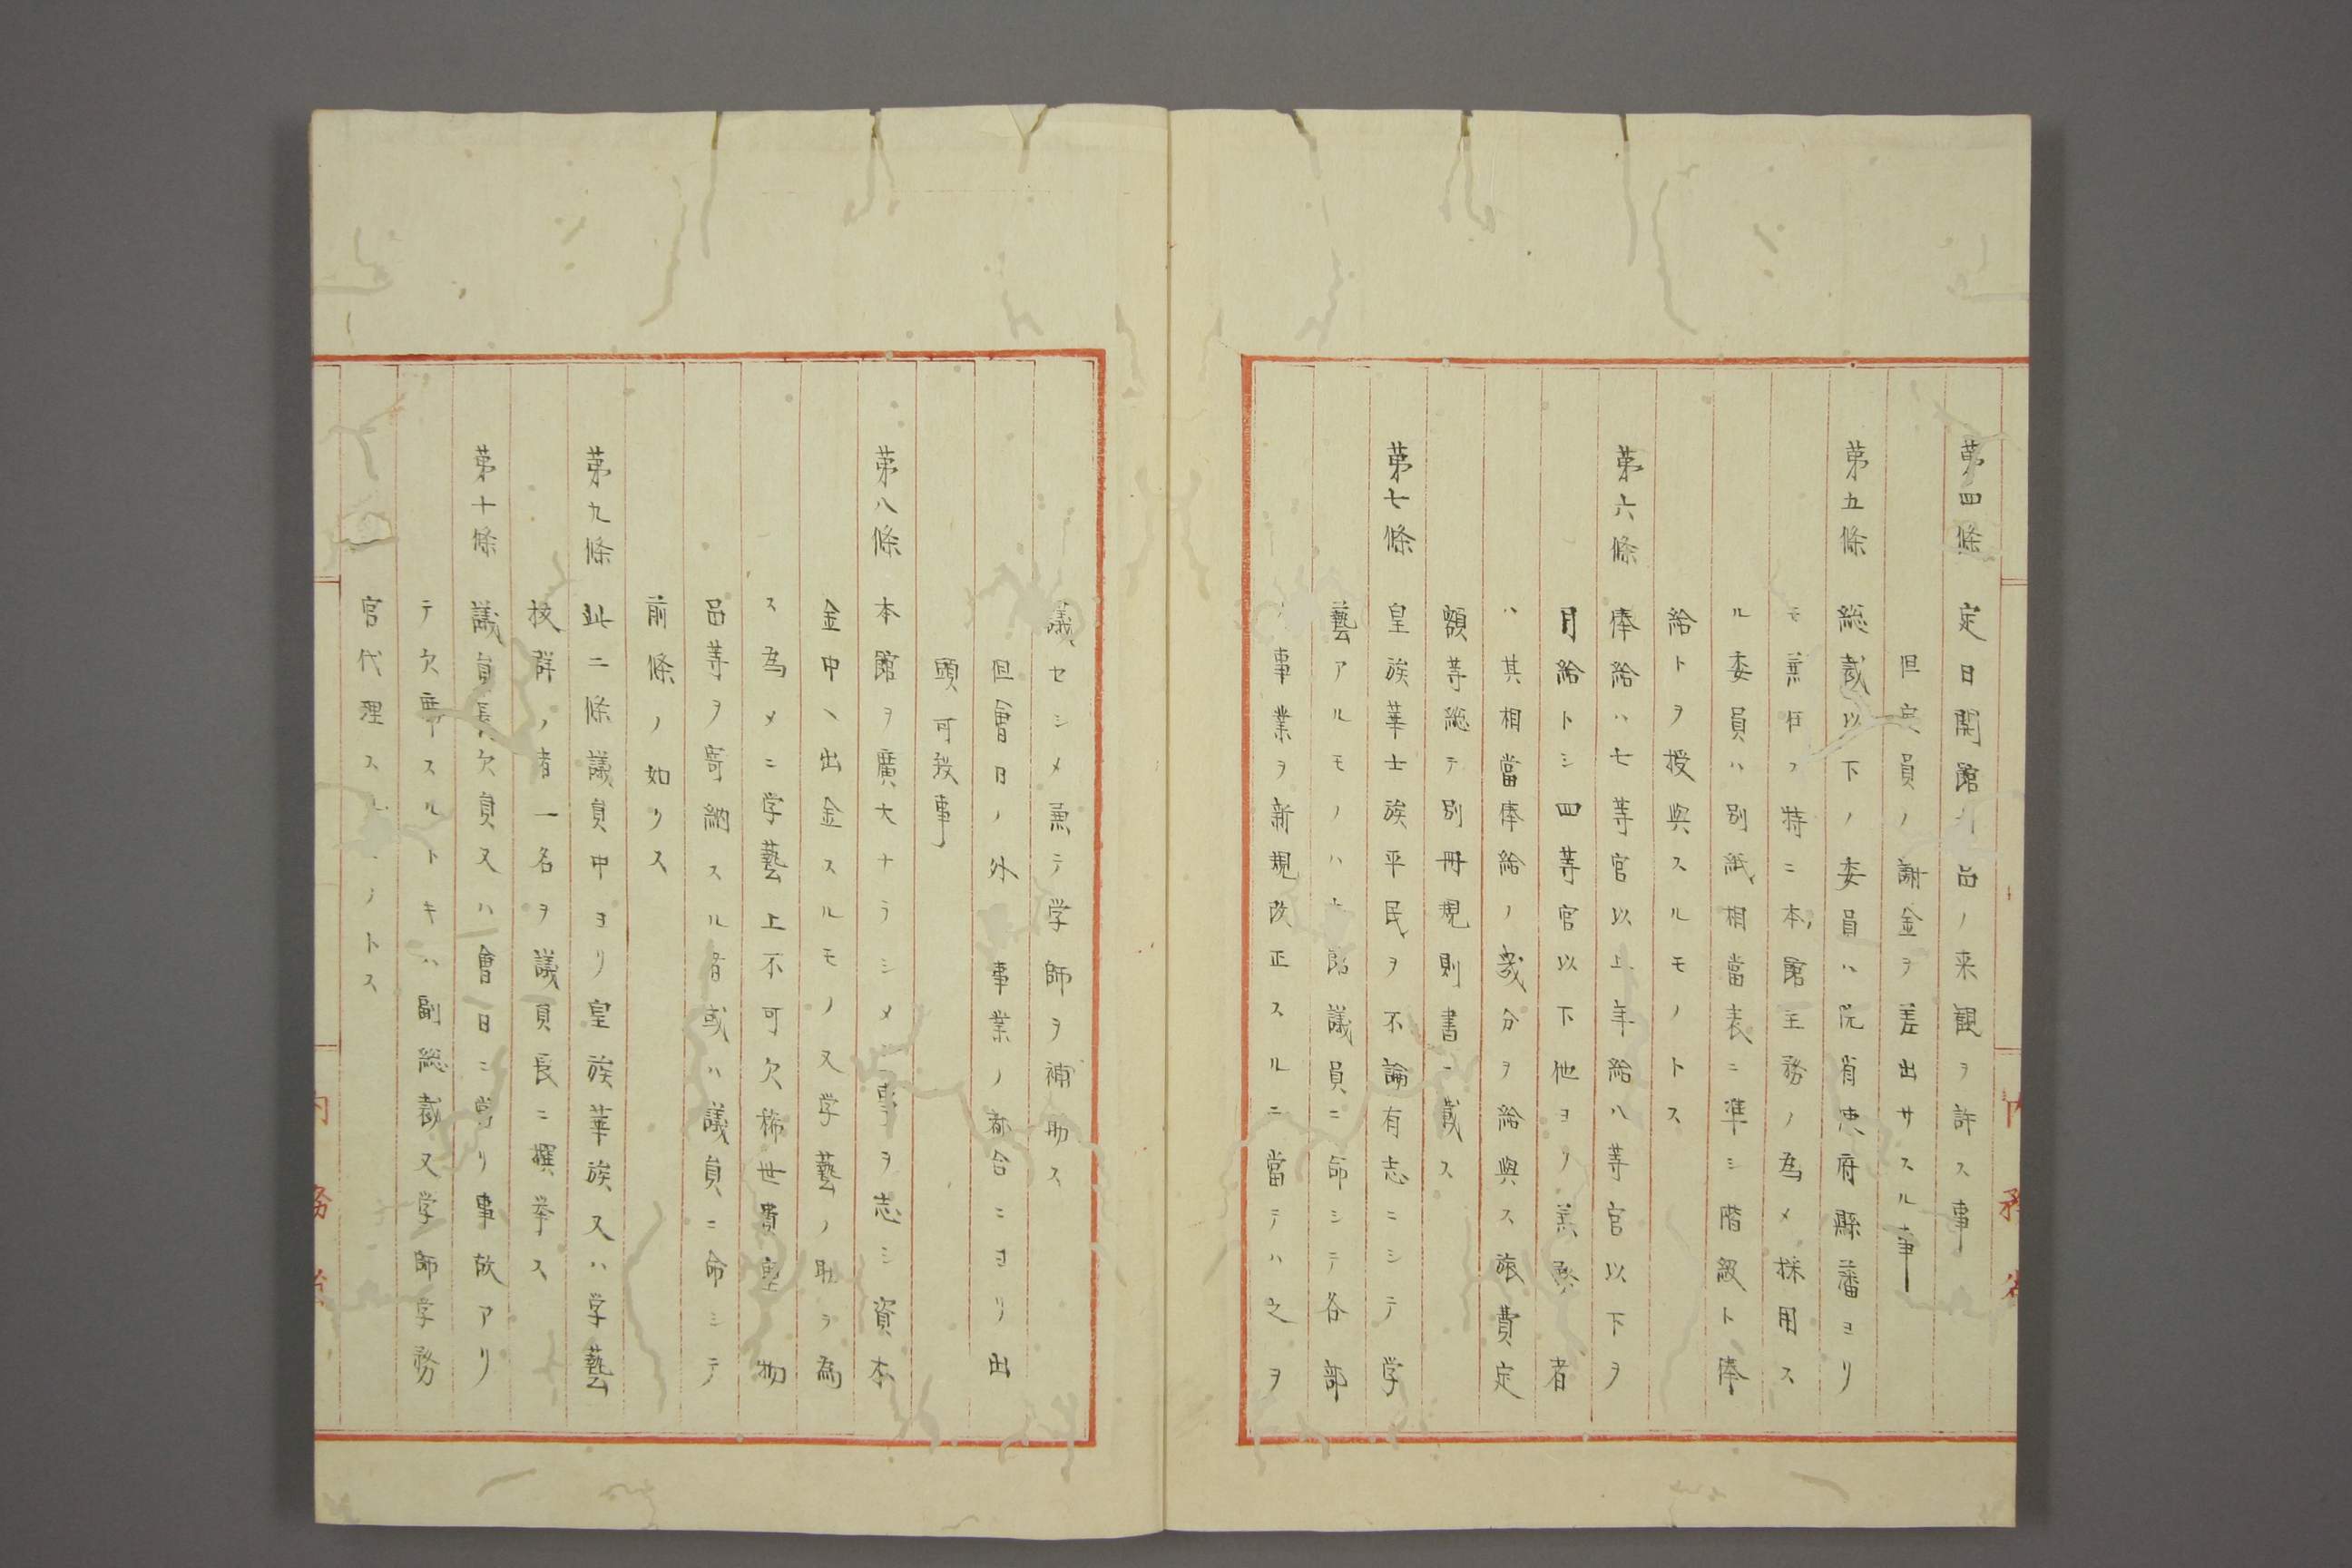 第四條 定日開館 品ノ来観ヲ許ス事
但定員ノ謝金ヲ差出サスル事
第五條 総裁以下ノ委員ハ院省使府縣藩ヨリ
モ兼任ス特ニ本館主務ノ為メ採用ス
ル委員ハ別紙相當表ニ準シ階級ト俸
給トヲ授與スルモノトス
第六條 俸給ハ七等官以上年給八等官以下ヲ
月給トシ四等官以下他ヨリ兼務者
ハ其相當俸給ノ幾分ヲ給與ス旅費定
額等総テ別冊規則書ニ載ス
第七條 皇族華士族平民ヲ不論有志ニシテ学
藝アルモノハ 館議員ニ命シテ各部
事業ヲ新規改正スルニ當テハ之ヲ
議セシメ兼テ学師ヲ補助ス
但會日ノ外 事業ノ都合ニヨリ出
頭可致事
第八條 本館ヲ廣大ナラシメン事ヲ志シ資本
金中ヘ出金スルモノ又学藝ノ助ヲ為
ス為メニ学藝上不可欠稀世貴重物
品等ヲ寄納スル者或ハ議員ニ命シテ
前條ノ如クス
第九條 此二條議員中ヨリ皇族華族又ハ学藝
抜群ノ者一名ヲ議員長ニ撰挙ス
第十條 議員長欠員又ハ會日ニ當リ事故アリ
テ欠席スルトキハ副総裁又学師学務
官代理スル ノトス
内務省
内務省